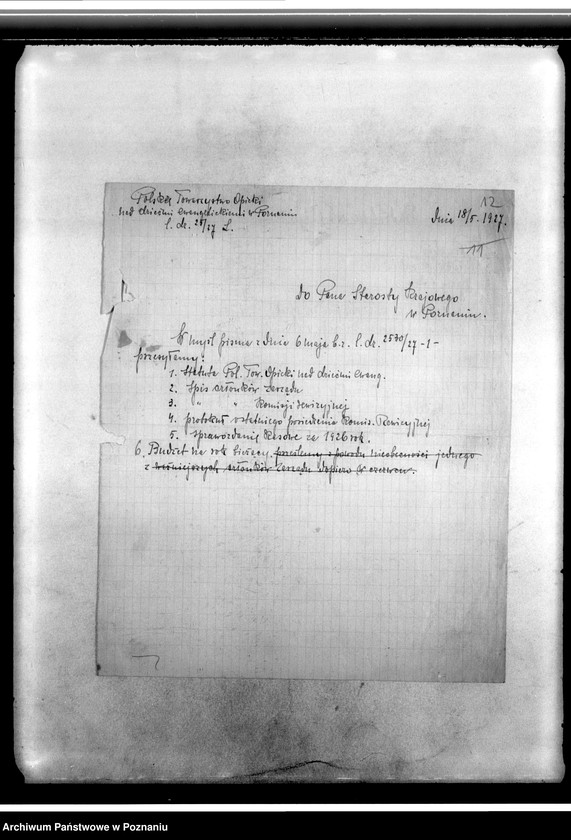 12
Polskie Towarzystwo Opieki
nad dziećmi ewangelickiemi w Poznaniu
dnia 18/5. 1927.
l. dz. 28/27 L.
11
Do Pana Starosty Krajowego
w Poznaniu.
W myśl pisma z dnia 6 maja b.r. l. dz. 2530/27 -1-
przesyłamy:
1. Statuta Pol. Tow. Opieki nad dziećmi ewang.
2. Spis członków zarządu
3. " " Komisji rewizyjnej
4. protokuł ostatniego posiedzenia Komis. Rewizyjnej
5. sprawozdanie kasowe za 1926 rok.
6. Budżet na rok bieżący. prześlemy z powodu nieobecności jednego
z członków zarządu dopiero w czerwcu.
Archiwum Państwowe w Poznaniu